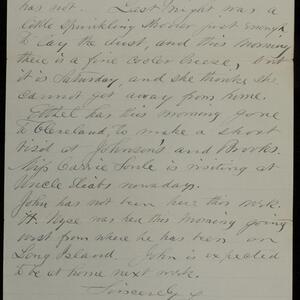 has not. Last night was a
little sprinkling shower just enough
to lay the dust, and this morning
there is a fine cooler breeze, but
it is Saturday, and she thinks she
cannot get away from home.
Ethel has this morning gone
to Cleveland, to make a short
visit at Johnson's and Brooks.
Miss Carrie Soule is visiting at
Uncle nowadays.
John has not been here this week.
H. Nyce was here this morning going
west from where he has been on
Long Island. John is expected
to be at home next week.
Sincerely